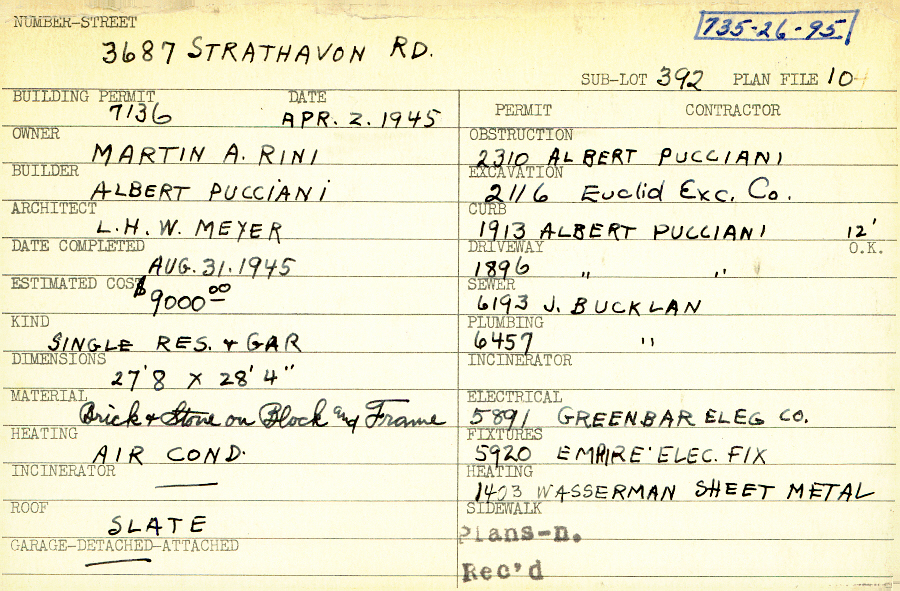 NUMBER-STREET
735-26-95
3687 STRATHAVON RD.
SUB-LOT 392 PLAN FILE 10
BUILDING PERMIT DATE
7136 APR. 2. 1945
OWNER
MARTIN A. RINI
BUILDER
ALBERT PUCCIANI
ARCHITECT
L.H.W. MEYER
DATE COMPLETED
AUG. 31. 1945
ESTIMATED COST
$9000 00
KIND
SINGLE RES. & GAR
DIMENSIONS
27'8 X 28'4"
MATERIAL
Brick & Stone on Block and Frame
HEATING
AIR COND.
INCINERATOR
ROOF
SLATE
GARAGE-DETACHED-ATTACHED
PERMIT CONTRACTOR
OBSTRUCTION
2310 ALBERT PUCCIANI
EXCAVATION
2116 Euclid Exc. Co.
CURB
1913 ALBERT PUCCIANI 12'
DRIVEWAY O.K.
1896 " "
SEWER
6193 J. BUCKLAN
PLUMBING
6457 "
INCINERATOR
ELECTRICAL
5891 GREENBAR ELEG CO.
FIXTURES
5920 EMPIRE ELEC. FIX
HEATING
1403 WASSERMAN SHEET METAL
SIDEWALK
Plans-n.
Rec'd